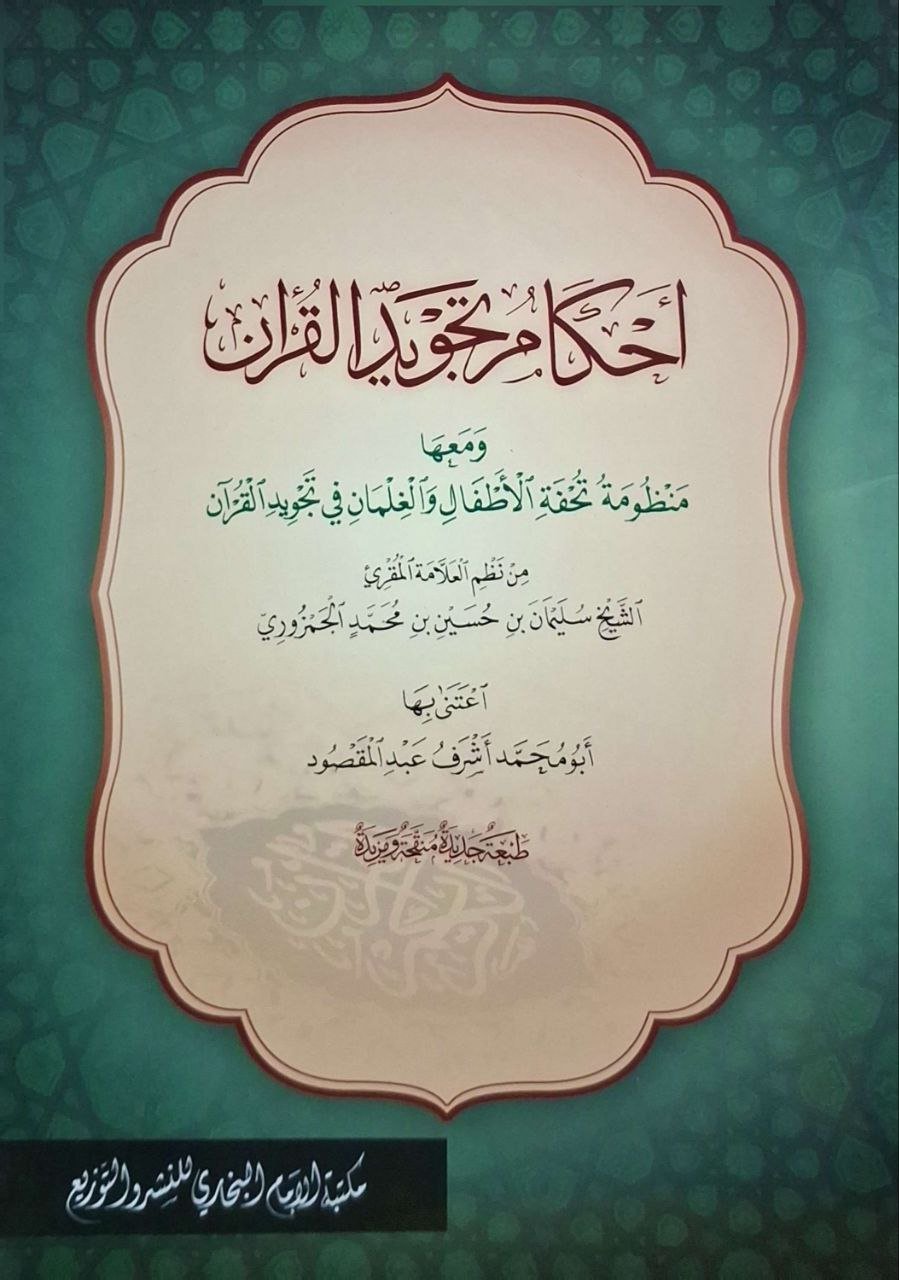 أَحْكَامُ تَجْوِيدِ القُرْآنِ
وَمَعَهَا
مَنْظُومَةُ تُحْفَةِ ٱلْأَطْفَالِ وَٱلْغِلْمَانِ فِي تَجْوِيدِ ٱلْقُرْآنِ
مِنْ نَظْمِ ٱلْعَلَّامَةِ ٱلْمُقْرِئِ
ٱلشَّيْخِ سُلَيْمَانَ بْنِ حُسَيْنِ بْنِ مُحَمَّدٍ ٱلْجَمْزُورِيِّ
ٱعْتَنَىٰ بِهَا
أَبُو مُحَمَّد أَشْرَفُ عَبْدِ ٱلْمَقْصُود
طَبْعَةٌ جَدِيدَةٌ مُنَقَّحَةٌ وَمَزِيدَةٌ
مكتبة الإمام البخاري للنشر والتوزيع